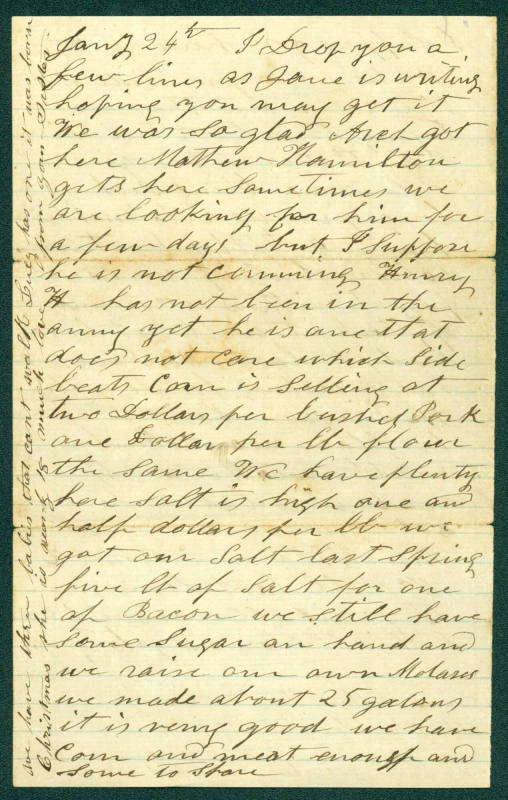 Jany 24th I Drop you a
few lines as Jane is writing
hoping you may get it
We was so glad Arch got
here Mathew Hamilton
gets here Sometimes we
are looking for him for
a few days but I Suppose
he is not comming Henry
H has not been in the
army yet he is one that
does not care which Side
beats Corn is Selling at
two Dollars per bushel Pork
one Dollar per lb flour
the same We have plenty
here Salt is high one and
half dollars per lb we
got our Salt last Spring
five lb of Salt for one
of Bacon we still have
some Sugar on hand and
we raise our own Molases
we made about 25 galons
it is verry good we have
Corn and meat enough and
Some to Spare
we have three babies that cant walk has one it was born
Christmas she is nearly 18 much love from your Sister